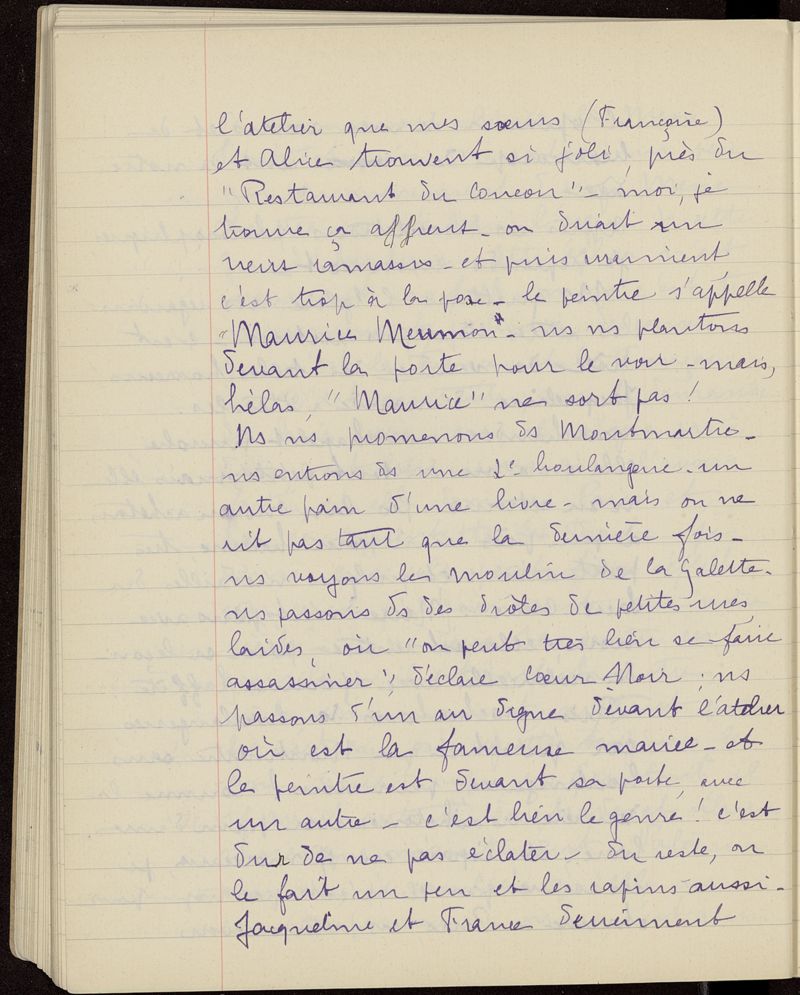 l'atelier que mes sœurs (Françoise)
et Alice trouvent si joli, près du
"Restaurant du Coucou" - moi, je
trouve ça affreux - on dirait un
vieux ramassis - et puis vraiment
c'est trop à la pose - le peintre s'appelle
"Maurice Meunion" - ns ns plantons
devant la porte pour le voir - mais,
hélas, "Maurice" ne sort pas !
Ns ns promenons ds Montmartre -
ns entrons ds une 2e boulangerie - un
autre pain d'une livre - mais on ne
rit pas tant que la dernière fois -
ns voyons le moulin de la Galette -
ns passons ds des drôles de petites rues
laides, où "on peut très bien se faire
assassiner", déclare Cœur Noir ; ns
passons d'un air digne devant l'atelier
où est la fameuse mariée - et
le peintre est devant sa porte, avec
un autre - c'est bien le genre ! c'est
dur de ne pas éclater - du reste, on
le fait un peu et les rapins aussi -
Jacqueline et France deviennent